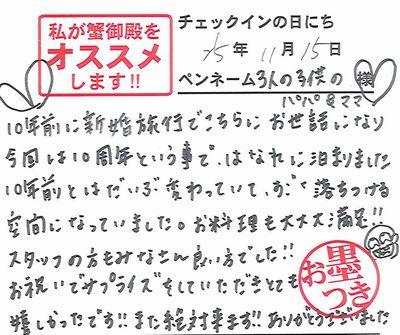 私が蟹御殿を
オススメ
します!!
チェックインの日にち
25年 11月 15日
ペンネーム 3人の子供の 様
パパ&ママ
10年前に新婚旅行でこちらにお世話になり
今回は10周年という事で、はなれに泊まりました
10年前とはだいぶ変わっていて、すごく落ちつける
空間になっていました。お料理も大大大満足!!
スタッフの方もみなさん良い方でした!!
お祝いでサプライズをしていただきとても
嬉しかったです!!また絶対来ます!! ありがとうございました
お墨つき